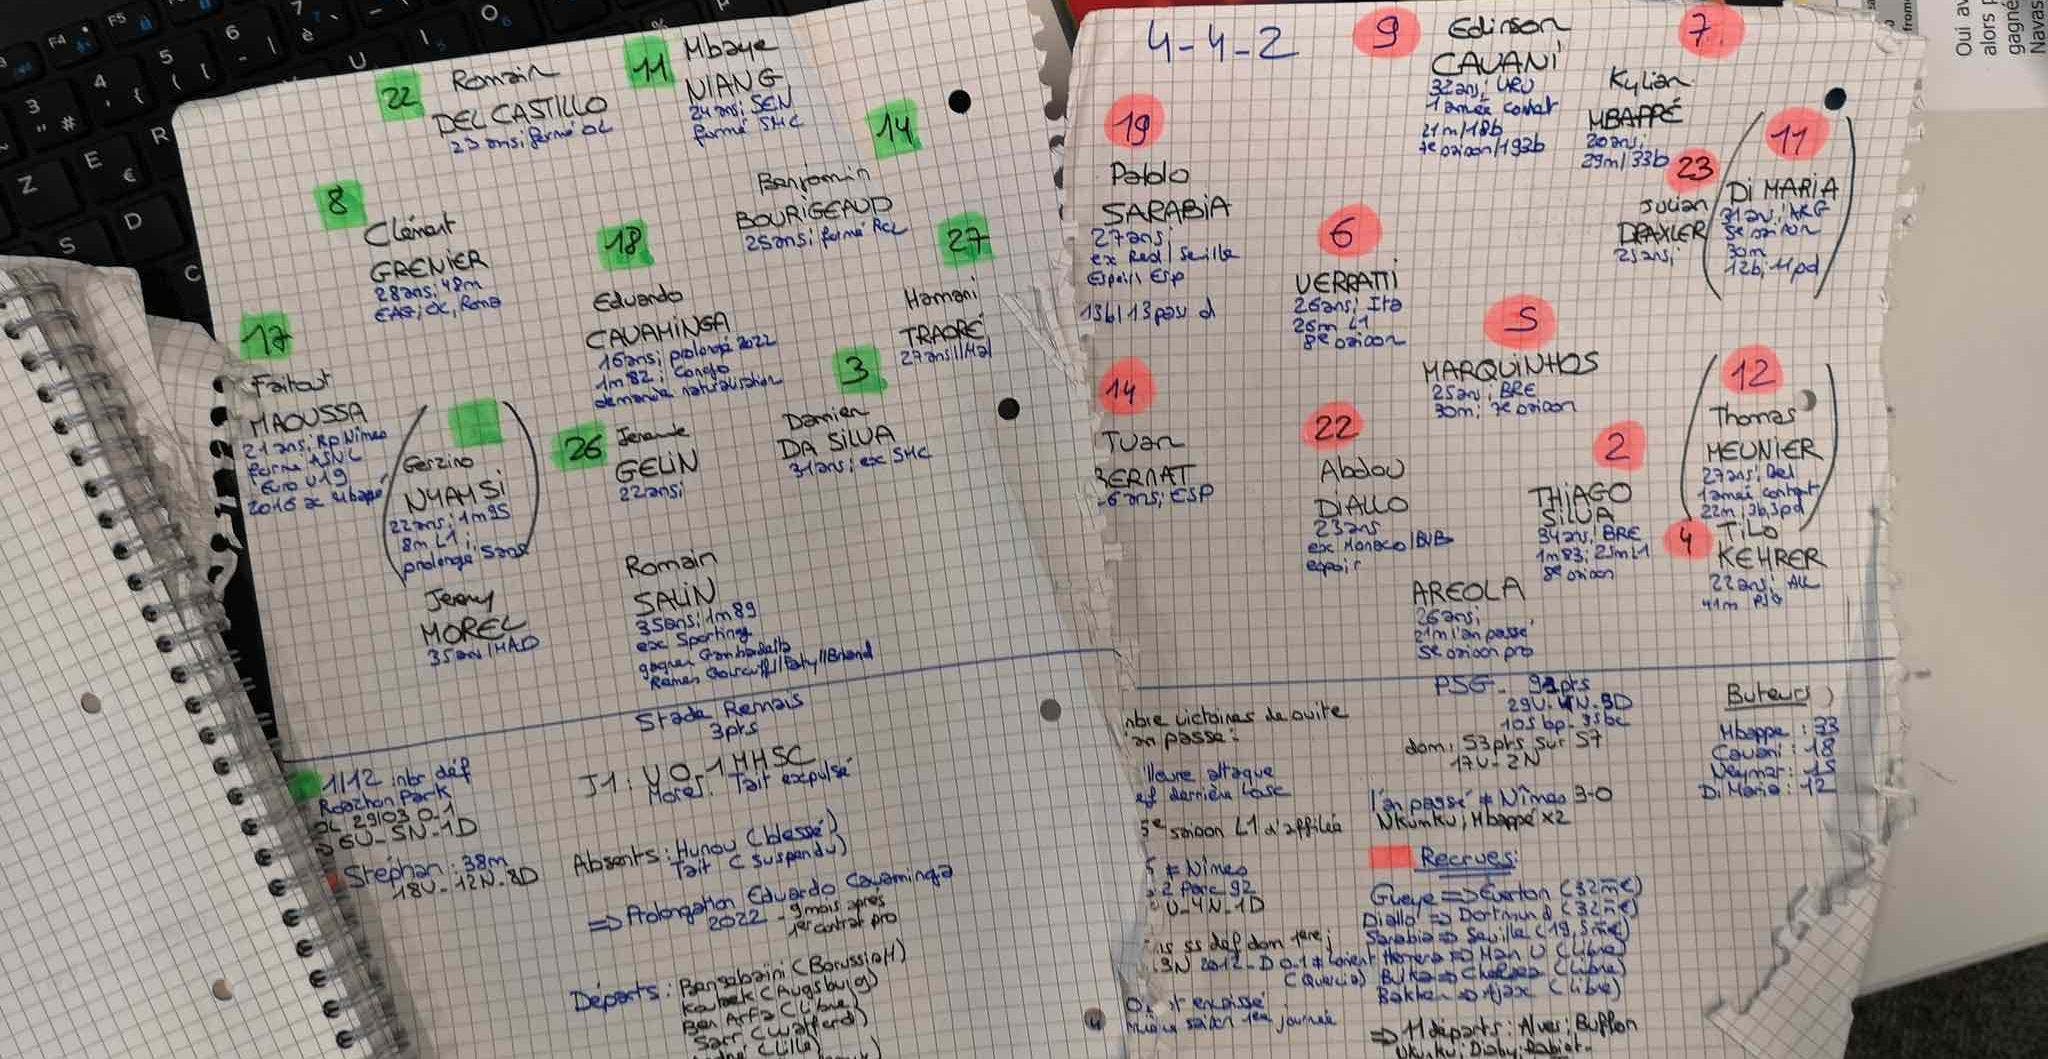 22
Romain
DEL CASTILLO
23 ans; formé OL
11
Mbaye
NIANG
24 ans; SEN
formé SMC
14
Benjamin
BOURIGEAUD
25 ans; formé RCL
8
Clément
GRENIER
28 ans; 48m
EAG; OL, Roma
18
Eduardo
CAVAMINGA
16 ans; prolongé 2022
1m82; Congo
demande naturalisation
27
Hamari
TRAORÉ
27 ans//Mal
17
Faitout
MAOUSSA
21 ans; Rp Nîmes
formé ASNL
Euro U19
2016 ac Mbappé
Gerzino
NYAMSI
22 ans; 1m95
8m L1;
prolongé 5ans
26
Jeremie
GELIN
22 ans;
3
Damien
DA SILVA
31 ans; ex SMC
Jeremy
MOREL
35 ans/MAD
Romain
SALIN
35 ans; 1m89
ex Sporting
gagner Gambardella
Rames Gourcuff//Faty//Briand
Stade Rennais
3pts
1/12 inbr déf
Roazhon Park
OL 29/03 0-1
6V-5N-1D
Stéphan: 38m
18V-12N-8D
J1: V 0-1 MHSC
Morel. Tait expulsé
Absents: Hunou (blessé)
Tait (suspendu)
=> Prolongation Eduardo Cavaminga
2022 - 9 mois après
1er contrat pro
Départs: Bensebaini (Borussia M)
Koubek (Augsburg)
Ben Arfa (Libre)
Sarr (Watford)
(Lille)
4-4-2
9
Edinson
CAVANI
32 ans; URU
1 année contrat
21m/18b
7e saison/193b
7
Kylian
MBAPPÉ
20 ans,
29m/33b
19
Pablo
SARABIA
27 ans;
ex Real/Seville
Espoirs Esp
13b/13pas d
23
Julian
DRAXLER
25 ans;
11
Di MARIA
31 ans; ARG
5e saison
30m
12b, 11pd
6
VERRATTI
26 ans; Ita
26m L1
8e saison
5
MARQUINHOS
25 ans; BRE
30m; 7e saison
14
Juan
BERNAT
6 ans; ESP
22
Abdou
DIALLO
23 ans
ex Monaco/BVB
espoir
2
THIAGO
SILVA
34 ans; BRE
1m83; 25m L1
8e saison
12
Thomas
MEUNIER
27 ans; Bel
1 année contrat
22m, 3b, 5pd
4
TILO
KEHRER
22 ans; ALL
41m PSG
AREOLA
26 ans;
21m l'an passé
5e saison pro
PSG - 91pts
29V-4N-5D
105bp-35bc
dom; 53pts sur 57
17V-2N
nbre victoires de suite
an passé:
lleure attaque
ef dernière Losc
5e saison L1 d'affilée
l'an passé ≠ Nîmes 3-0
Nkunku; Mbappé x2
Buteurs
Mbappe: 33
Cavani: 18
Neymar: 15
Di Maria: 12
5 ≠ Nîmes
2 Parc 92
U-4N-1D
ss déf dom 1ere j
3N 2012-D 0-1 ≠ Lorient
(Quercia)
expissé
saison 1ere journée
Recrues:
Gueye => Everton (32m€)
Diallo => Dortmund (32m€)
Sarabia => Seville (19,5m€)
Herrera => Man U (Libre)
Bulka => Chelsea (Libre)
Bakker => Ajax (Libre)
=> 11 départs: Alves; Buffon
Nkunku; Diaby; Rabiot-
Oui av
alors p
gagné
Navas